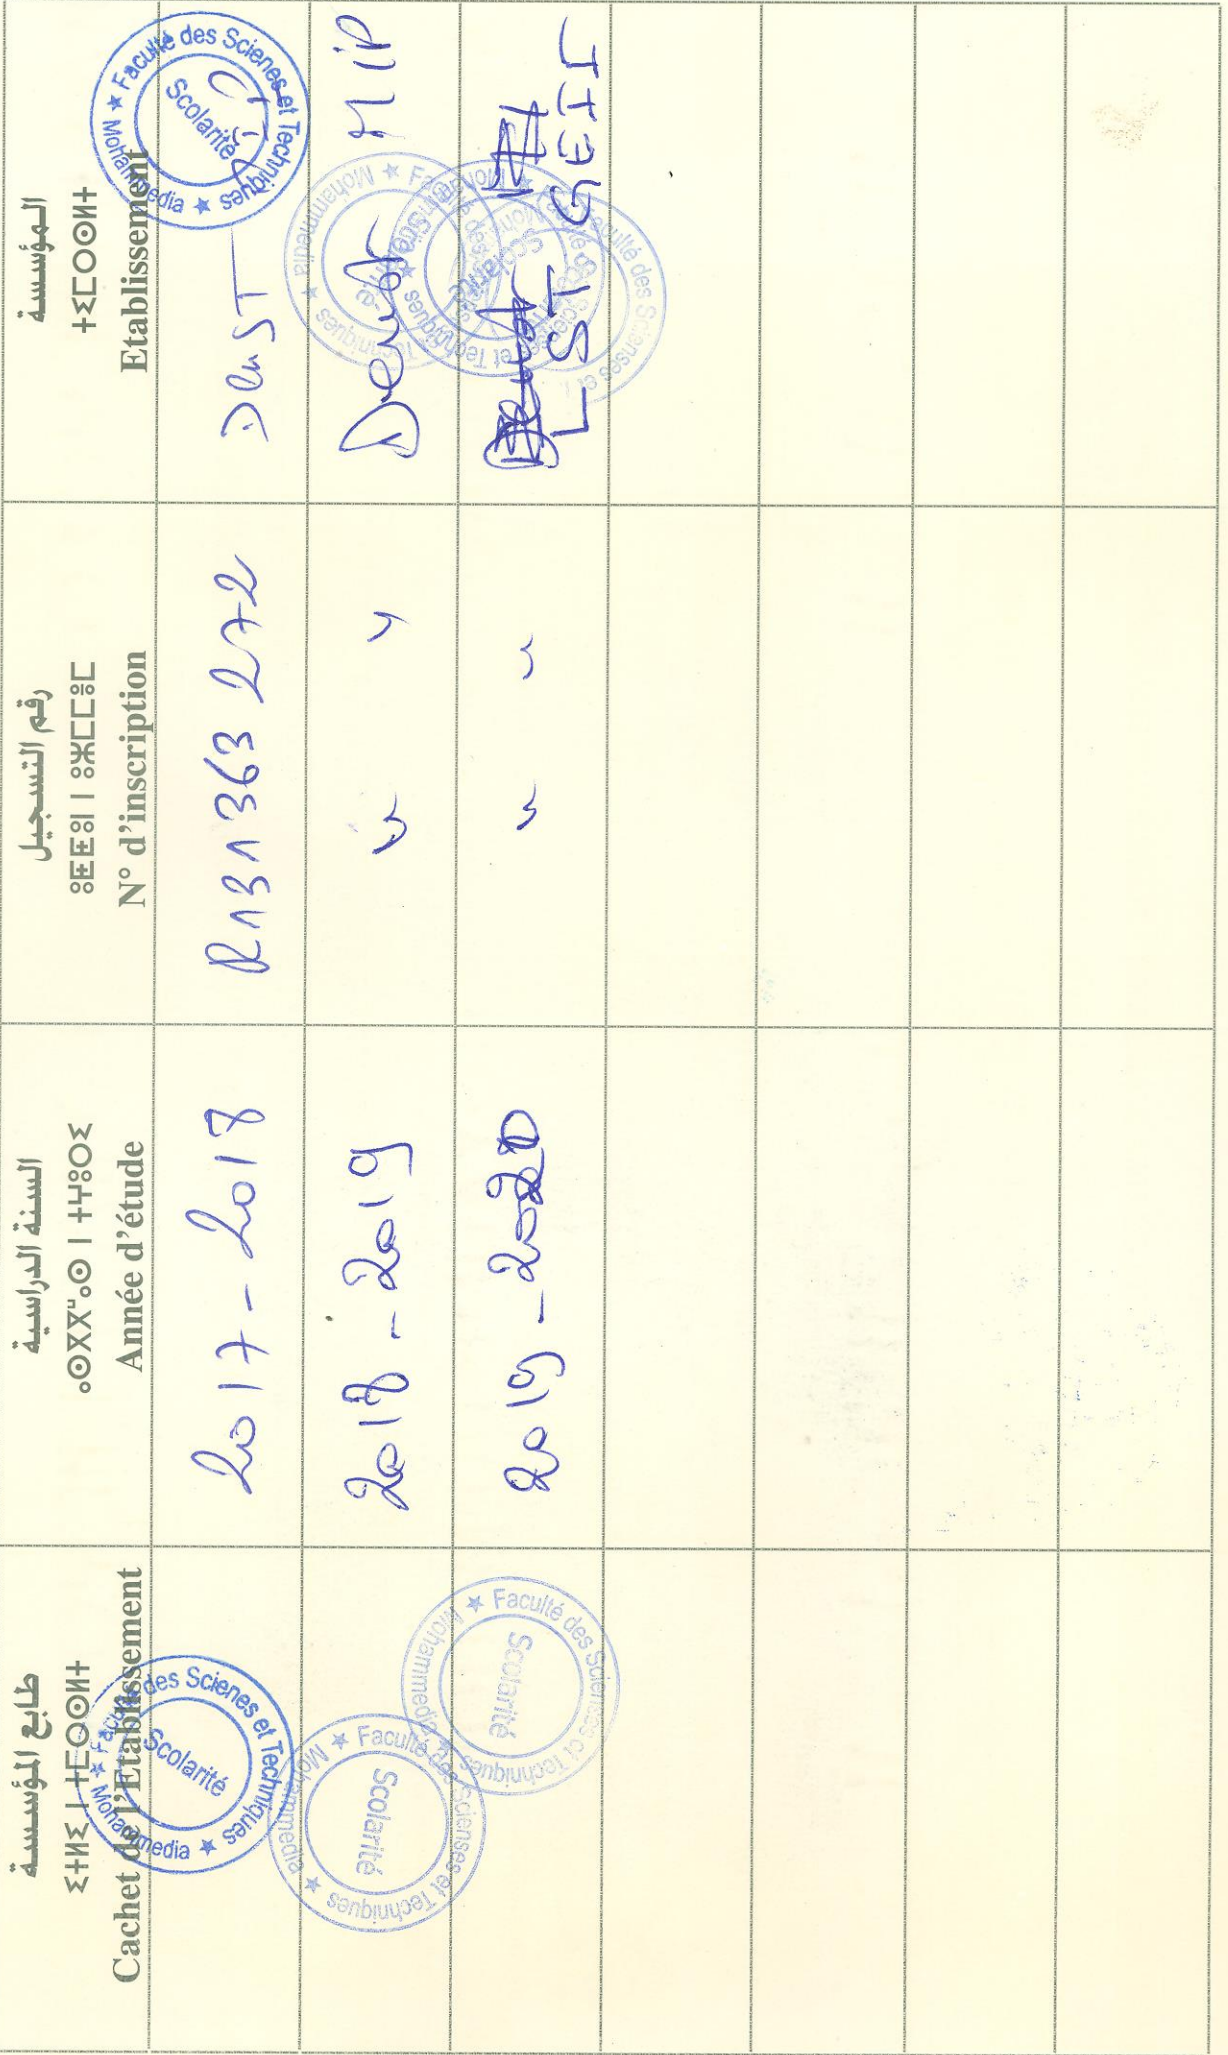 المؤسسة
ⵜⵉⵎⵙⵙⵍⵜ
Etablissement
رقم التسجيل
ⵓⵟⵟⵓⵏ ⵏ ⵓⵣⵎⵎⵓⵎ
N° d'inscription
السنة الدراسية
ⴰⵙⴳⴳⵯⴰⵙ ⵏ ⵜⵖⵓⵔⵉ
Année d'étude
طابع المؤسسة
Cachet de l'Etablissement
DeuST
R131363 272
2017-2018
Faculté des Scienes et Techniques ★ Mohammedia ★
Scolarité
Faculté des Scienes et Techniques ★ Mohammedia ★
Scolarité
MIP
2018-2019
Faculté des Scienses et Techniques ★ Mohammedia ★
Scolarité
LST
2019-2020
Faculté des Scienses et Techniques ★ Mohammedia ★
Scolarité